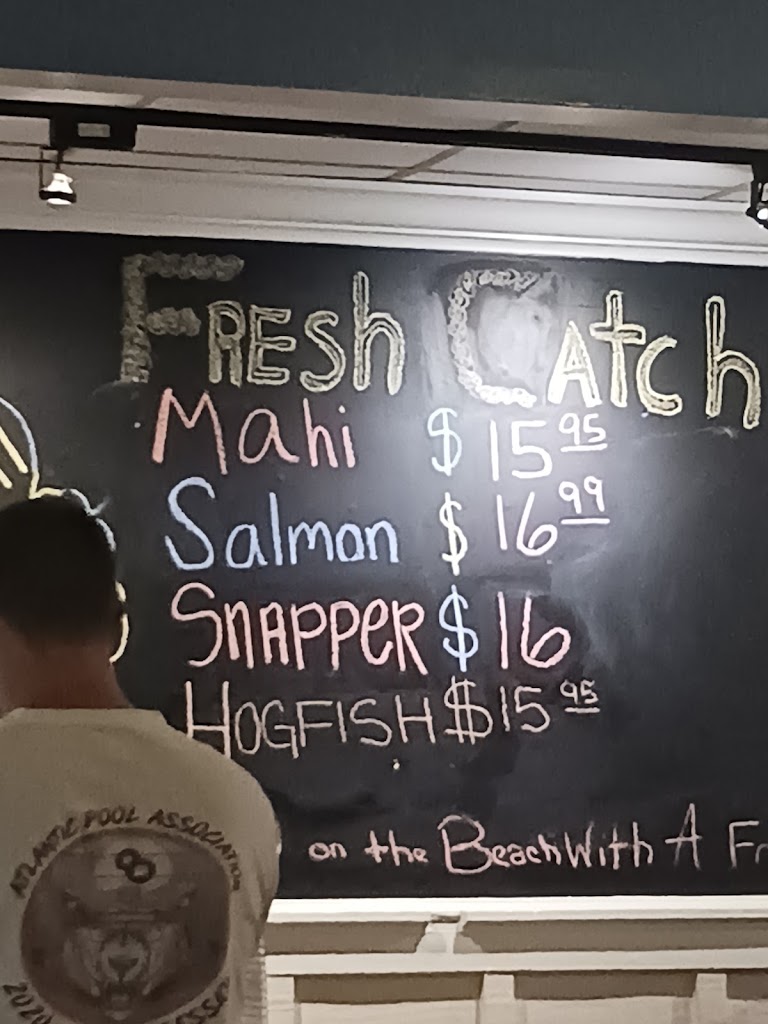 FRESh CAtch
Mahi $ 15 95
Salmon $ 16 99
SNAPPER $ 16
HOGFISH $ 15 95
on the Beach With A
ATLANTIC POOL ASSOCIATION
8
2020